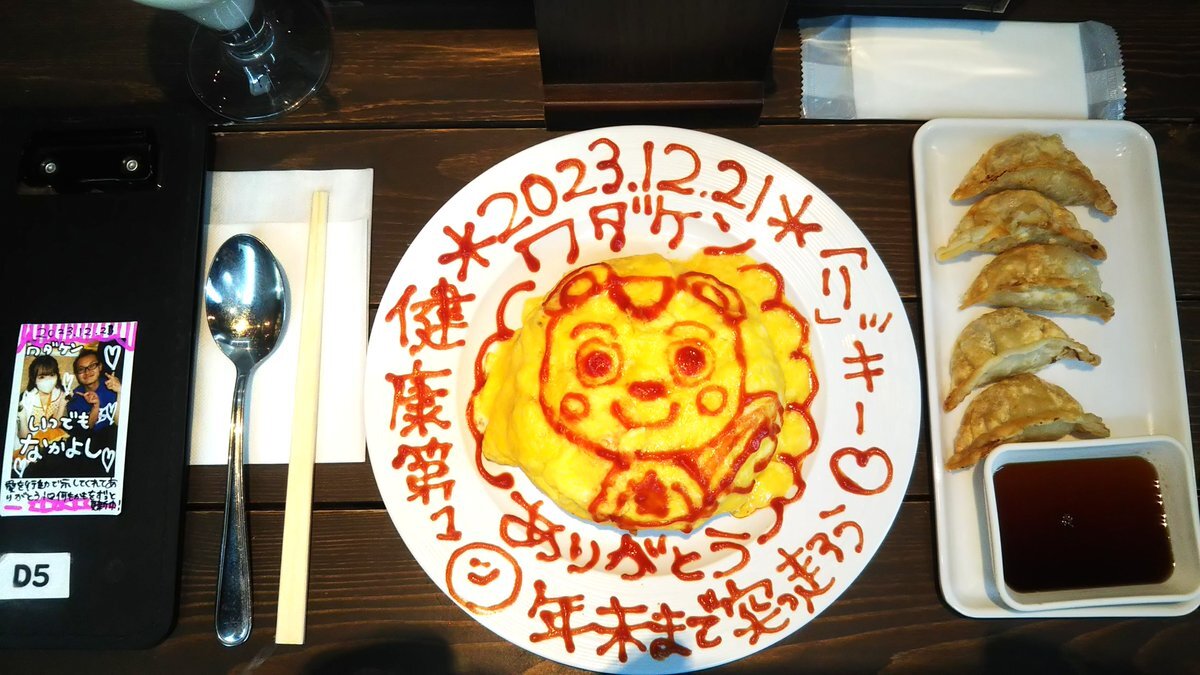 *2023.12.21*
ワダケン
「リ」ッキー♡
健康第1
ありがとう
年末まで突っ走ろう
2023.12.21
ワダケン
いつでも
なかよし
愛を行動で示してくれてあ
りがとう
D5